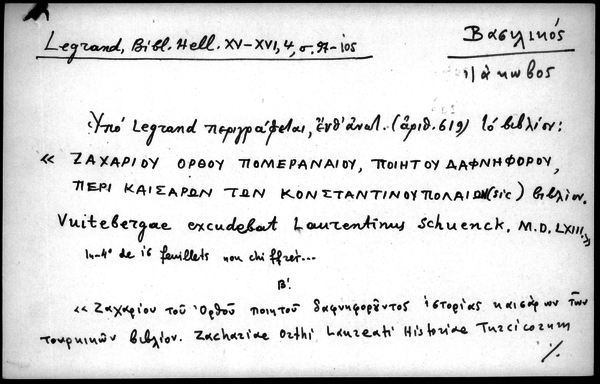 Legrand, Bibl. Hell. XV-XVI, 4, σ. 97-105
Βασιλικός
Ἰάκωβος
Ὑπό Legrand περιγράφεται, ἔνθ' ἀνωτ. (ἀριθ. 619) τό βιβλίον:
« ΖΑΧΑΡΙΟΥ ΟΡΘΟΥ ΠΟΜΕΡΑΝΑΙΟΥ, ΠΟΙΗΤΟΥ ΔΑΦΝΗΦΟΡΟΥ,
ΠΕΡΙ ΚΑΙΣΑΡΩΝ ΤΩΝ ΚΟΝΣΤΑΝΤΙΝΟΥΠΟΛΑΙΩΝ (sic) βιβλίον.
Vuitebergae excudebat Laurentinus Schuenck. M.D.LXIII.»
In-4° de 16 feuillets non chiffrés...
Β'.
« Ζαχαρίου τοῦ Ὀρθοῦ ποιητοῦ δαφνηφοροῦντος ἱστορίας καισάρων τῶν
τουρκικῶν βιβλίον. Zachariae Orthi Laureati Historiae Turcicorum
./.